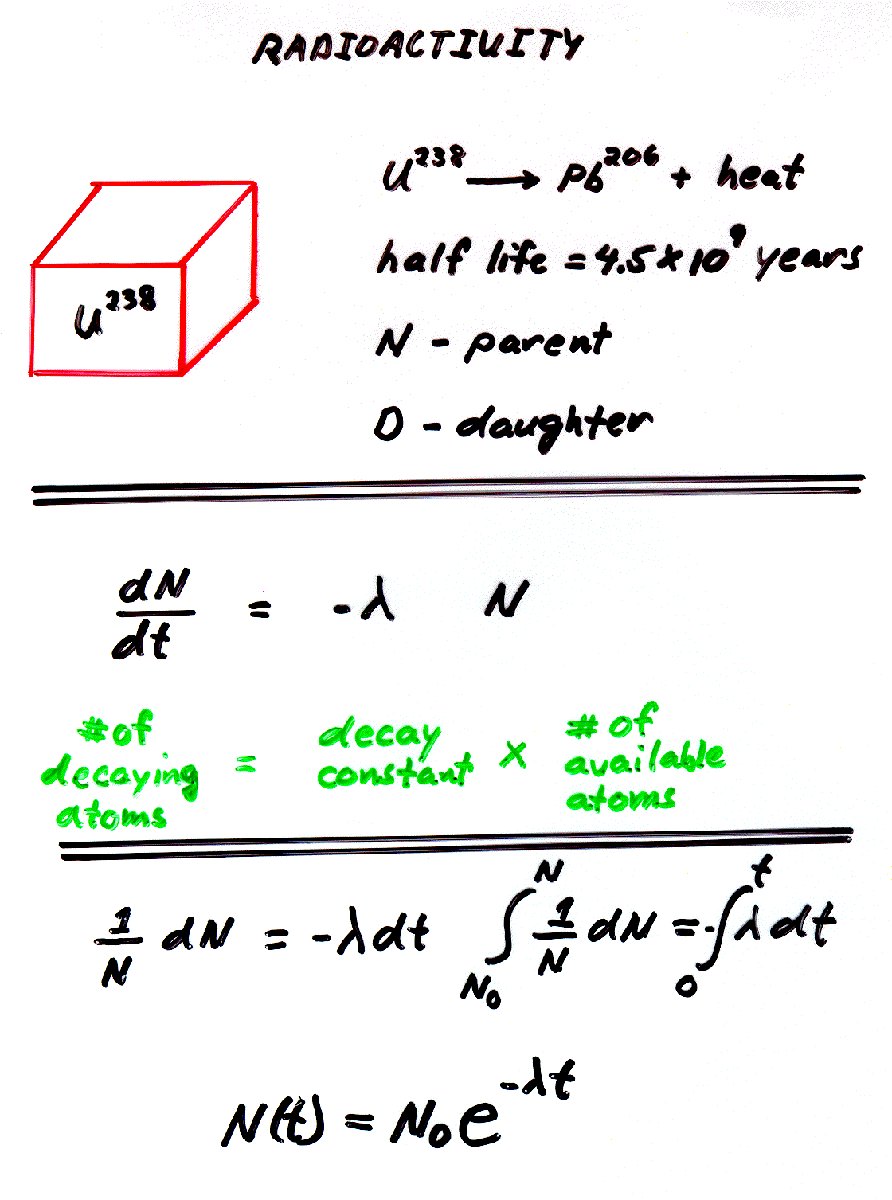 RADIOACTIVITY
U²³⁸ → Pb²⁰⁶ + heat
half life = 4.5 × 10⁹ years
U²³⁸
N - parent
D - daughter
dN/dt = -λ N
# of decaying atoms = decay constant × # of available atoms
1/N dN = -λdt ∫_{N₀}^{N} 1/N dN = -∫_{0}^{t} λ dt
N(t) = N₀e^{-λt}